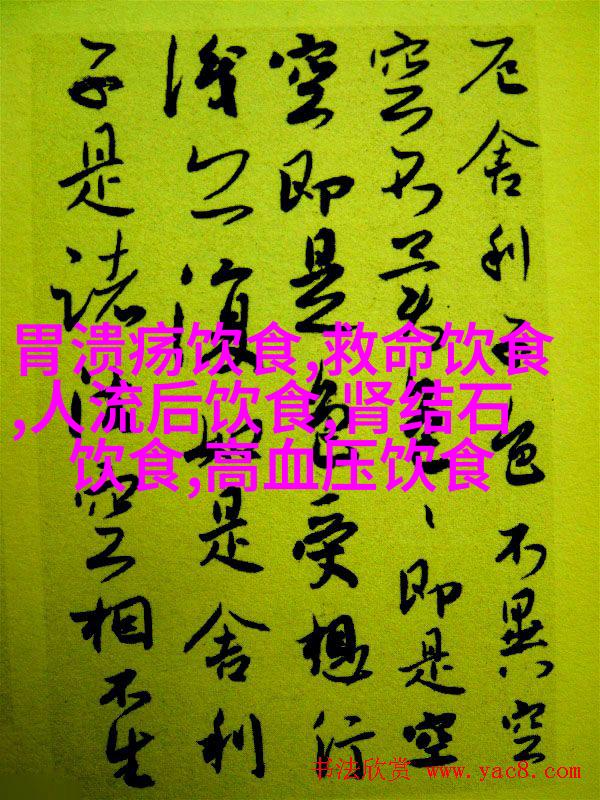 厄舍利子色不異空
空不異色〻即是空
空即是色受想行
識亦復如是舍利
子是諸法空相不生
胃溃疡饮食,救命饮食
,人流后饮食,肾结石
饮食,高血压饮食
书法欣赏 www.yac8.com